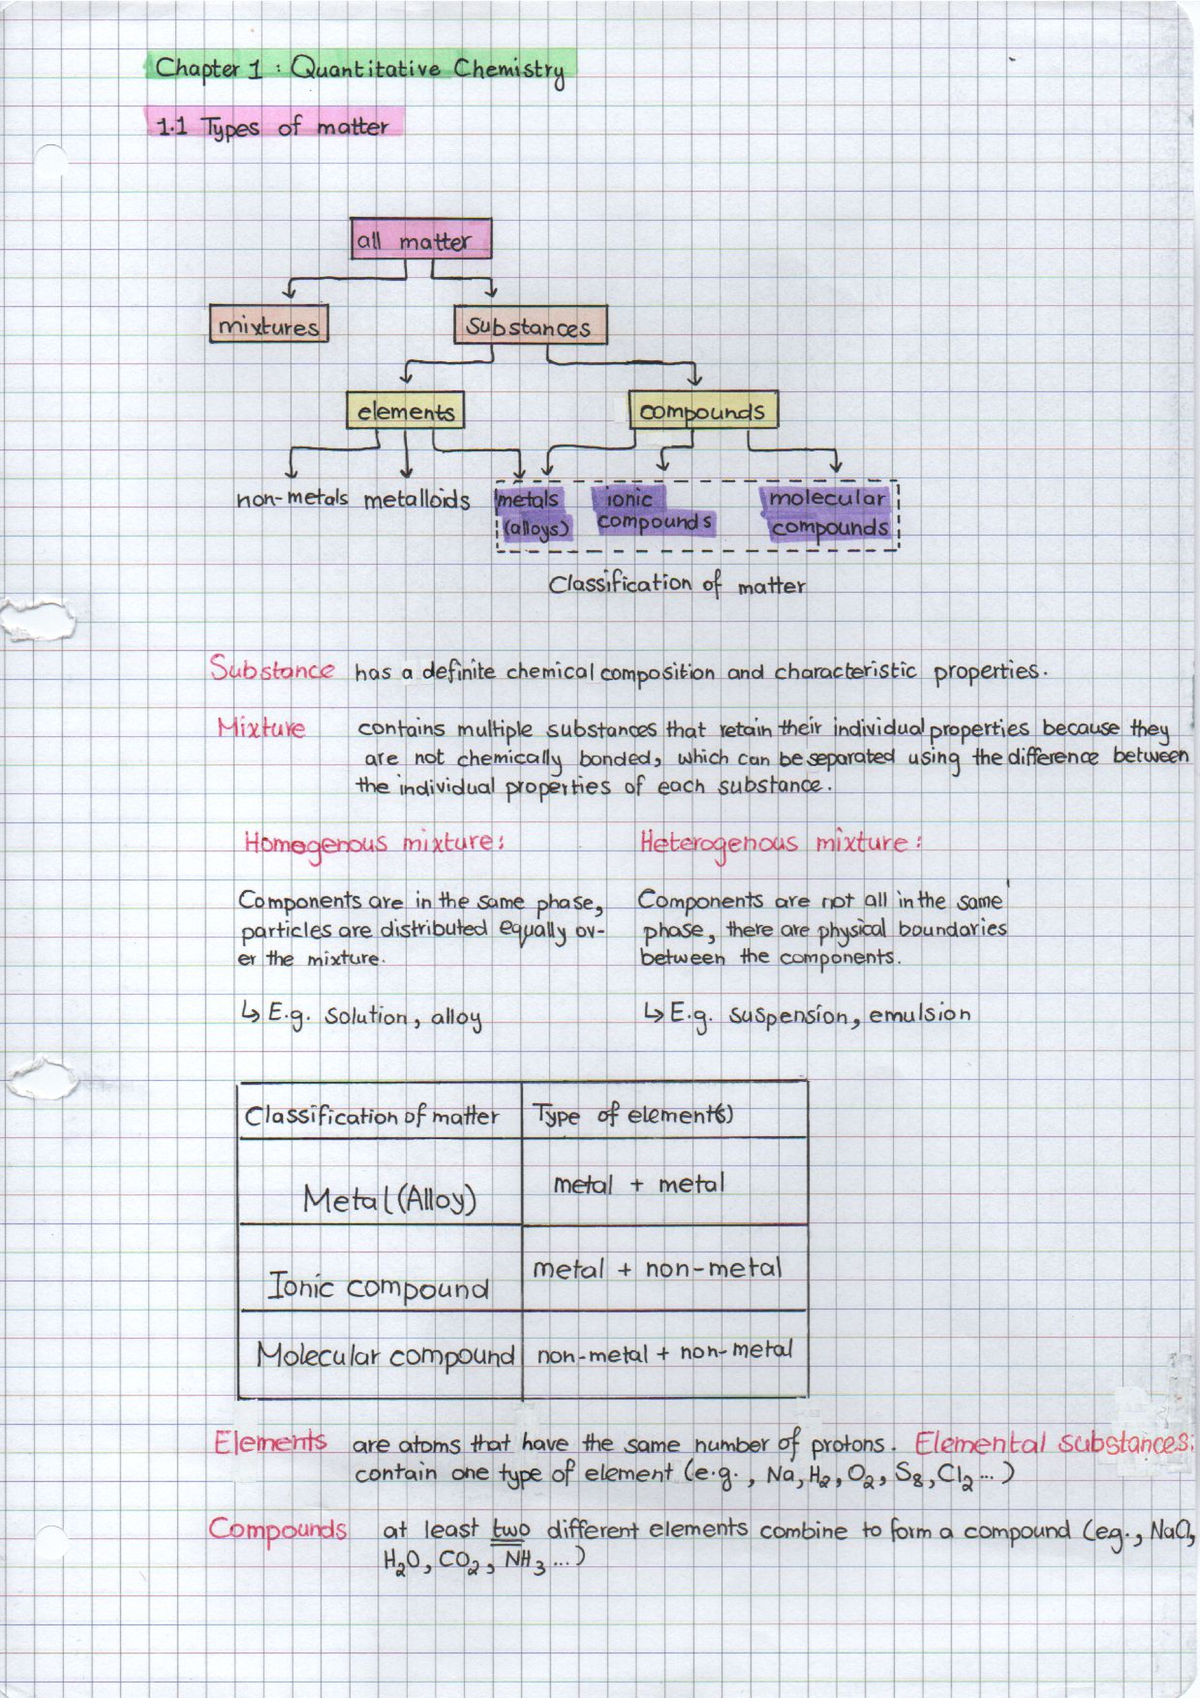 Chapter 1 : Quantitative Chemistry
1.1 Types of matter
all matter
mixtures
substances
elements
compounds
non-metals
metalloids
metals
(alloys)
ionic
compounds
molecular
compounds
Classification of matter
Substance has a definite chemical composition and characteristic properties.
Mixture contains multiple substances that retain their individual properties because they
are not chemically bonded, which can be separated using the difference between
the individual properties of each substance.
Homogenous mixture:
Components are in the same phase,
particles are distributed equally ov-
er the mixture.
↳ E.g. solution, alloy
Heterogenous mixture:
Components are not all in the same
phase, there are physical boundaries
between the components.
↳ E.g. suspension, emulsion
Classification of matter Type of element(s)
Metal (Alloy) metal + metal
Ionic compound metal + non-metal
Molecular compound non-metal + non-metal
Elements are atoms that have the same number of protons. Elemental substances:
contain one type of element (e.g., Na, H₂, O₂, S₈, Cl₂ ...)
Compounds at least two different elements combine to form a compound (eg., NaCl,
H₂O, CO₂, NH₃ ...)